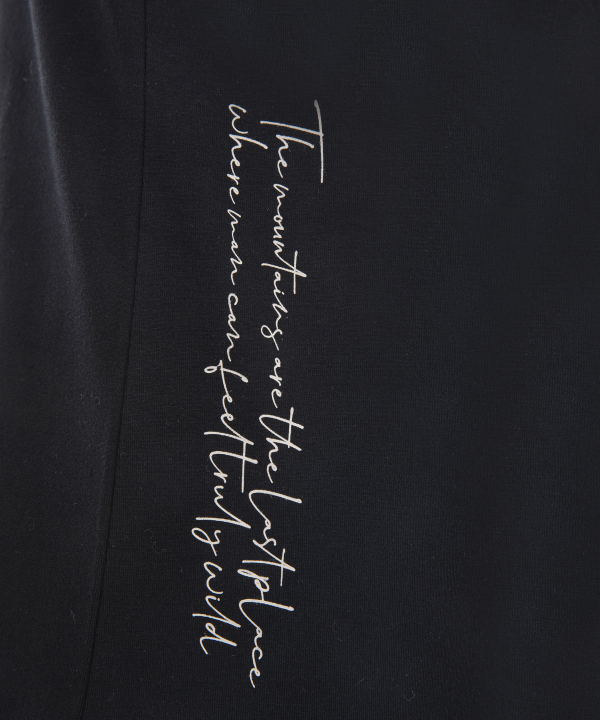 The mountains are the last place
where man can feel truly wild